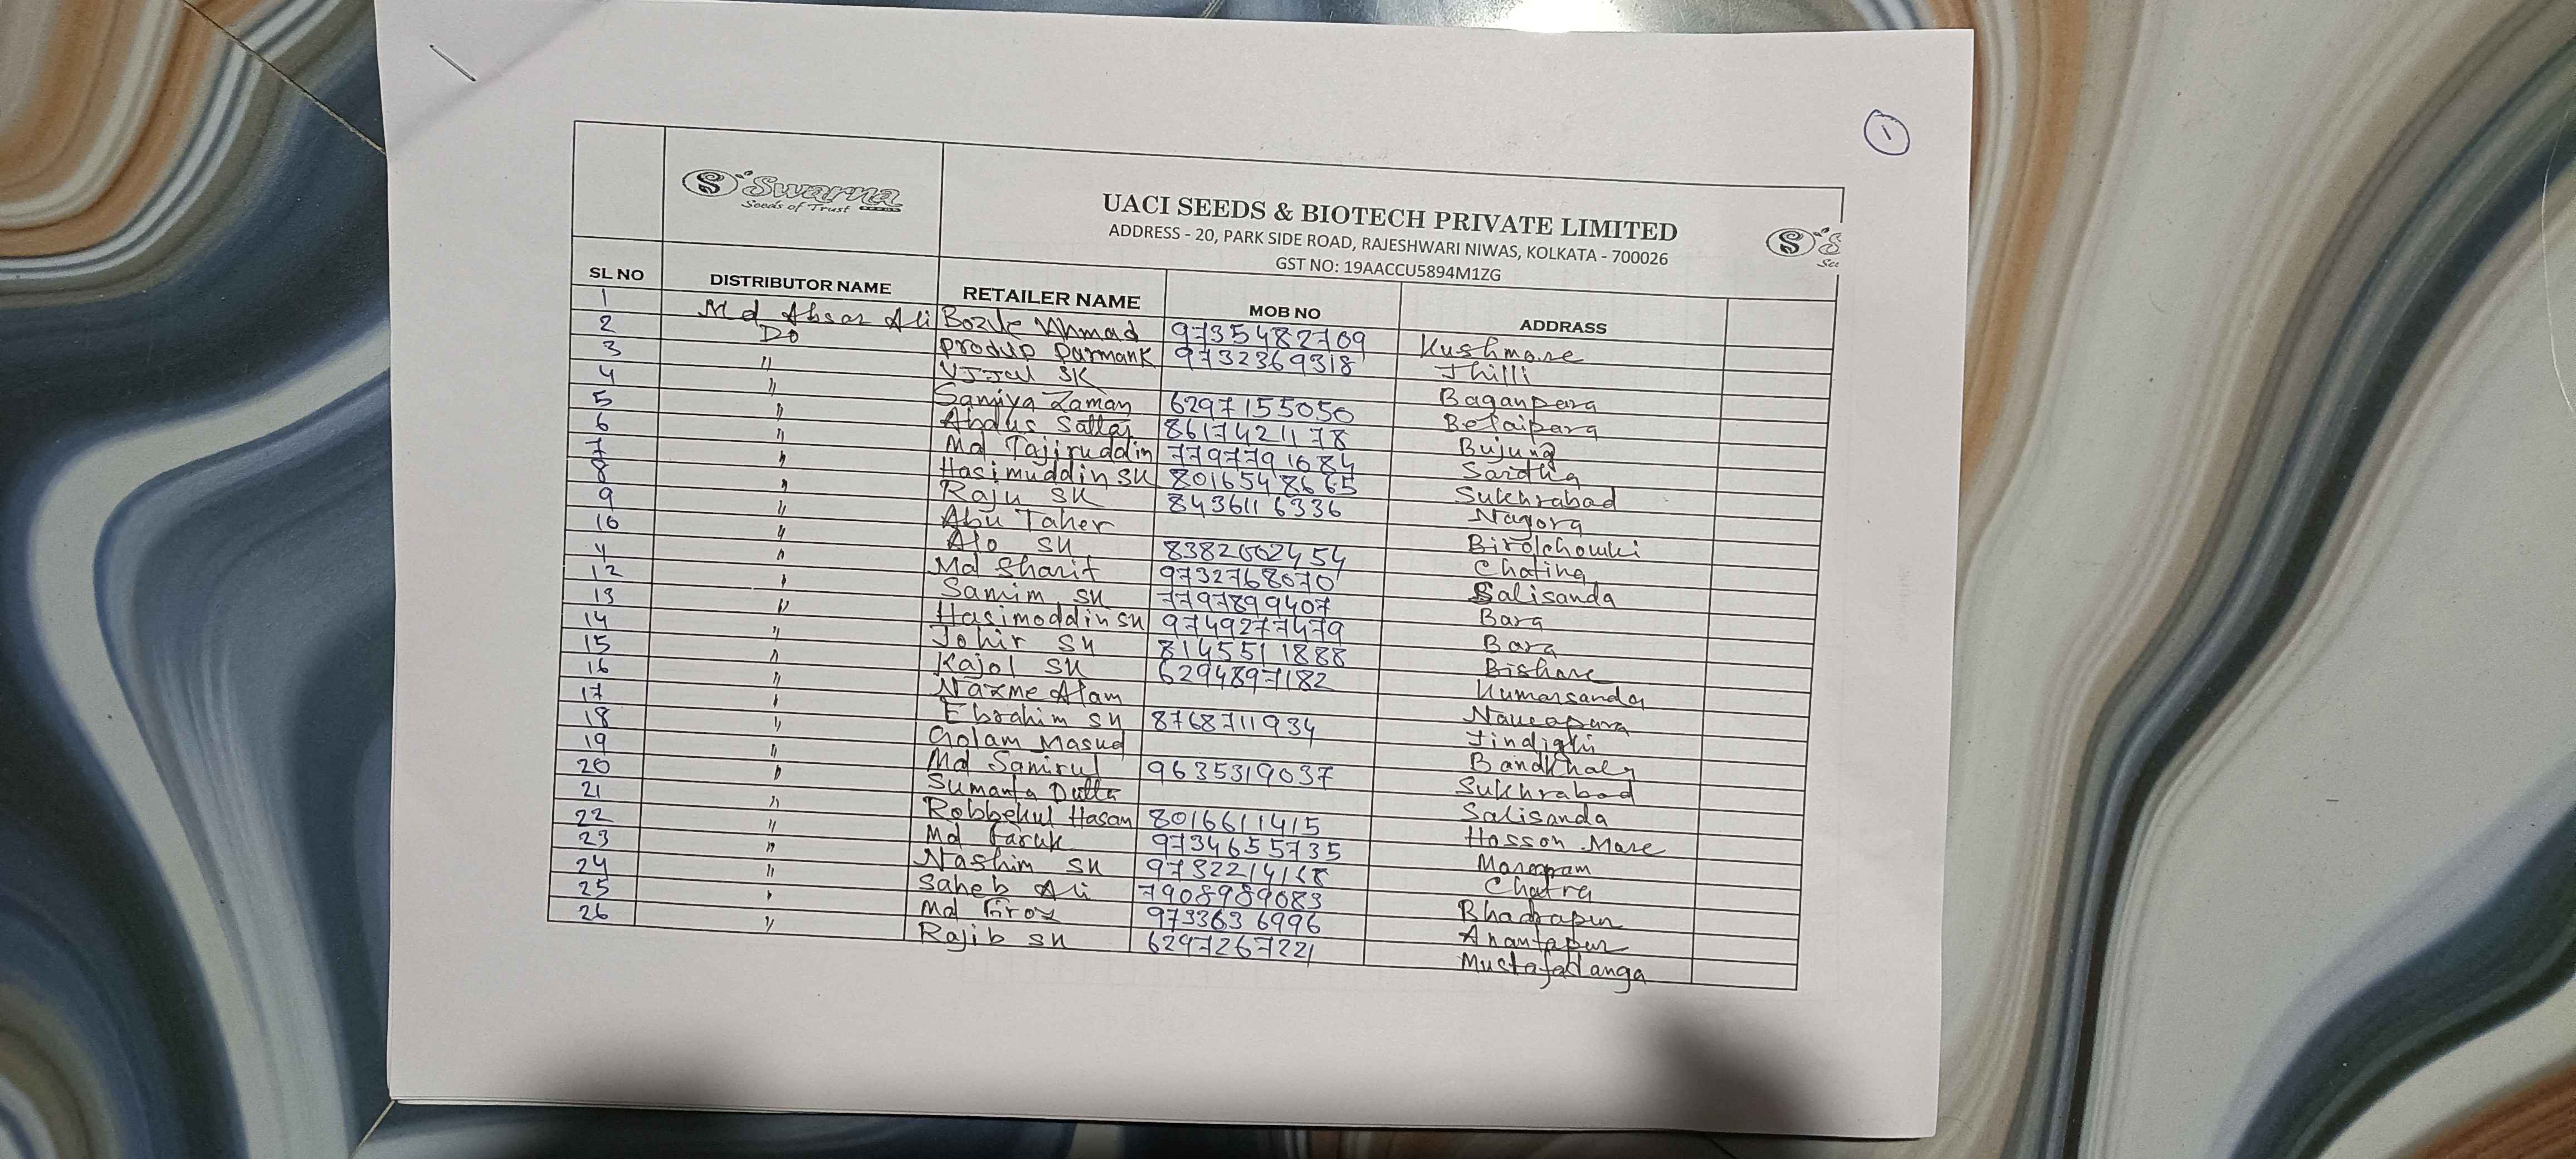 1
Swarna
Seeds of Trust
UACI SEEDS & BIOTECH PRIVATE LIMITED
ADDRESS - 20, PARK SIDE ROAD, RAJESHWARI NIWAS, KOLKATA - 700026
GST NO: 19AACCU5894M1ZG
S
SL NO DISTRIBUTOR NAME RETAILER NAME MOB NO ADDRASS
1 Md Ahsar Ali Bozle Ahmad 9735482709 Kushmore
2 Do Produp Parmank 9732369318 Jhilli
3 " Ujjal SK Baganpara
4 " Samiya Zaman 6297155050 Betaipara
5 " Abdus Sattar 8617421178 Bujung
6 " Md Tajiruddin 7797791684 Sardha
7 " Hasimuddin SK 8016548665 Sukhrabad
8 " Raju SK 8436116336 Nagora
9 " Abu Taher Birolchowki
10 " Alo SK 8382602454 Chatina
11 " Md Sharif 9732768070 Salisanda
12 " Samim SK 7797899407 Bara
13 " Hasimoddin SK 9749277479 Bara
14 " Johir SK 8145511888 Bishore
15 " Kajol SK 6294897182 Kumarsanda
16 " Nazme Alam
17 " Ebrahim SK 8768711934 Jindighi
18 " Golam Masud Bandkhala
19 " Md Samirul 9635319037 Sukhrabad
20 " Sumanta Dutta Salisanda
21 " Robbekul Hasan 8016611415 Hosson More
22 " Md Faruk 9734655735
23 " Nashim SK 9732214168 Chatra
24 " Saheb Ali 7908989083 Bhadrapur
25 " Md Firoz 9733636996 Anantapur
26 " Rajib SK 6297267221 Mustafadanga